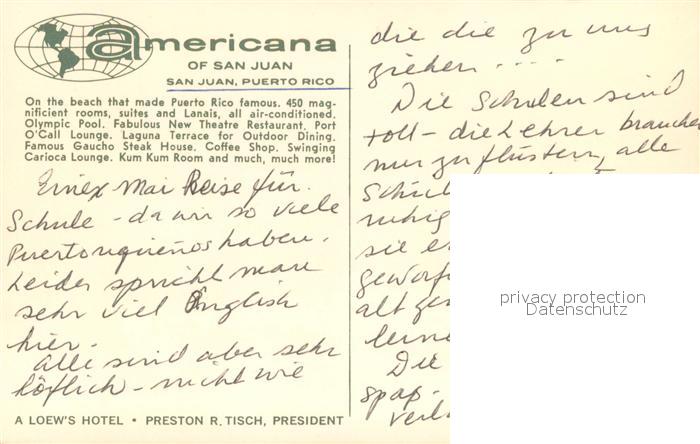 americana
OF SAN JUAN
SAN JUAN, PUERTO RICO
On the beach that made Puerto Rico famous. 450 mag-
nificent rooms, suites and Lanais, all air-conditioned.
Olympic Pool. Fabulous New Theatre Restaurant. Port
O'Call Lounge. Laguna Terrace for Outdoor Dining.
Famous Gaucho Steak House. Coffee Shop. Swinging
Carioca Lounge. Kum Kum Room and much, much more!
Mai Reise für
Schule - da wir so viele
Puertoriqueños haben.
Leider spricht man
sehr viel English
hier.
Alle sind aber sehr
höflich - nicht wie
A LOEW'S HOTEL • PRESTON R. TISCH, PRESIDENT
die die zu uns
ziehen ....
Die Schulen sind
toll - die Lehrer brauchen
nur zu flüstern, alle
Schül
ruhig
sie
geworf
alt
lerne
Die
spap-
privacy protection
Datenschutz